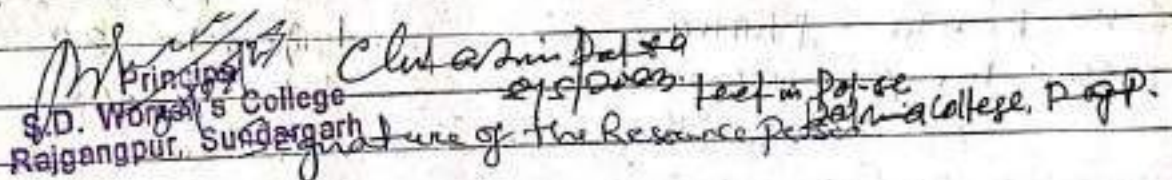 Principal
S.D. Women's College
Rajgangpur, Sundergarh
2/5/2023. Lect in Pol-sc
College, Rgp.
Signature of the Resource person